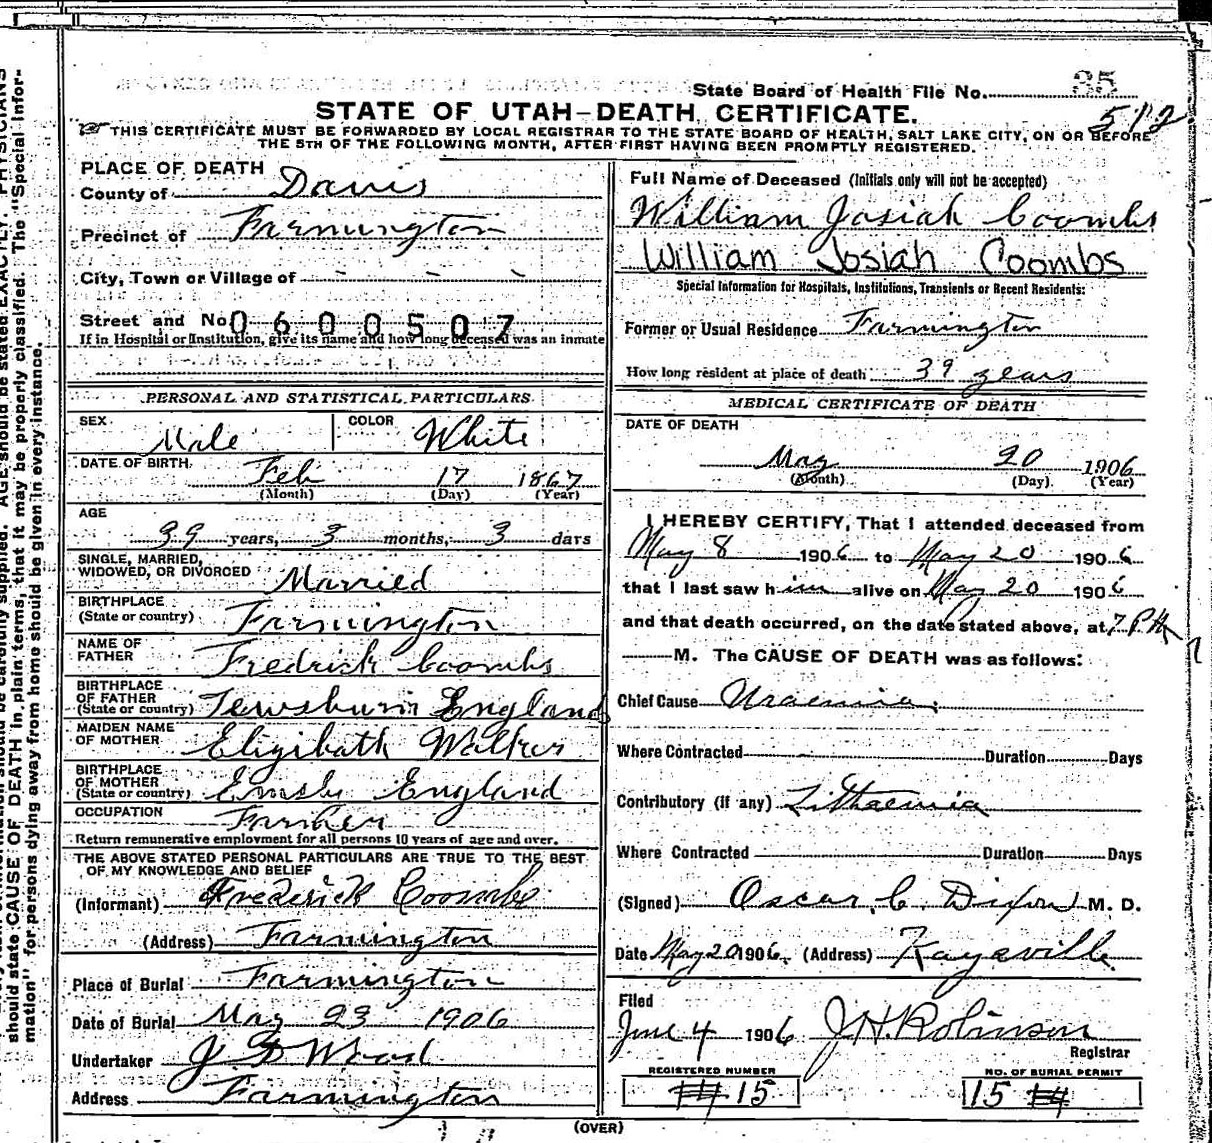 State Board of Health File No. 35
512
STATE OF UTAH–DEATH CERTIFICATE.
THIS CERTIFICATE MUST BE FORWARDED BY LOCAL REGISTRAR TO THE STATE BOARD OF HEALTH, SALT LAKE CITY, ON OR BEFORE
THE 5TH OF THE FOLLOWING MONTH, AFTER FIRST HAVING BEEN PROMPTLY REGISTERED.
PLACE OF DEATH
County of Davis
Precinct of Farmington
City, Town or Village of - - -
Street and No. 0600507
If in Hospital or Institution, give its name and how long deceased was an inmate
PERSONAL AND STATISTICAL PARTICULARS
SEX Male COLOR White
DATE OF BIRTH Feb 17 1867
(Month) (Day) (Year)
AGE
39 years, 3 months, 3 days
SINGLE, MARRIED,
WIDOWED, OR DIVORCED Married
BIRTHPLACE
(State or country) Farmington
NAME OF
FATHER Fredrick Coombs
BIRTHPLACE
OF FATHER
(State or country) England
MAIDEN NAME
OF MOTHER Elizibath Walker
BIRTHPLACE
OF MOTHER
(State or country) England
OCCUPATION Farmer
Return remunerative employment for all persons 10 years of age and over.
THE ABOVE STATED PERSONAL PARTICULARS ARE TRUE TO THE BEST
OF MY KNOWLEDGE AND BELIEF
(Informant) Frederick Coombs
(Address) Farmington
Place of Burial Farmington
Date of Burial May 23 1906
Undertaker J D Wood
Address Farmington
Full Name of Deceased (Initials only will not be accepted)
William Josiah Coombs
William Josiah Coombs
Special Information for Hospitals, Institutions, Transients or Recent Residents:
Former or Usual Residence Farmington
How long resident at place of death 39 years
MEDICAL CERTIFICATE OF DEATH
DATE OF DEATH
May 20 1906
(Month) (Day) (Year)
I HEREBY CERTIFY, That I attended deceased from
May 8 1906 to May 20 1906
that I last saw him alive on May 20 1906
and that death occurred, on the date stated above, at 7 P.M.
M. The CAUSE OF DEATH was as follows:
Chief Cause Uraemia
Where Contracted Duration Days
Contributory (if any) Lithaemia
Where Contracted Duration Days
(Signed) Oscar C. Dixon M. D.
Date May 20 1906. (Address) Kaysville
Filed
June 4 1906 J.H. Robinson
Registrar
REGISTERED NUMBER
15
NO. OF BURIAL PERMIT
15
(OVER)
AGE should be stated EXACTLY. PHYSICIANS
should state CAUSE OF DEATH in plain terms, that it may be properly classified. The "Special Infor-
mation" for persons dying away from home should be given in every instance.